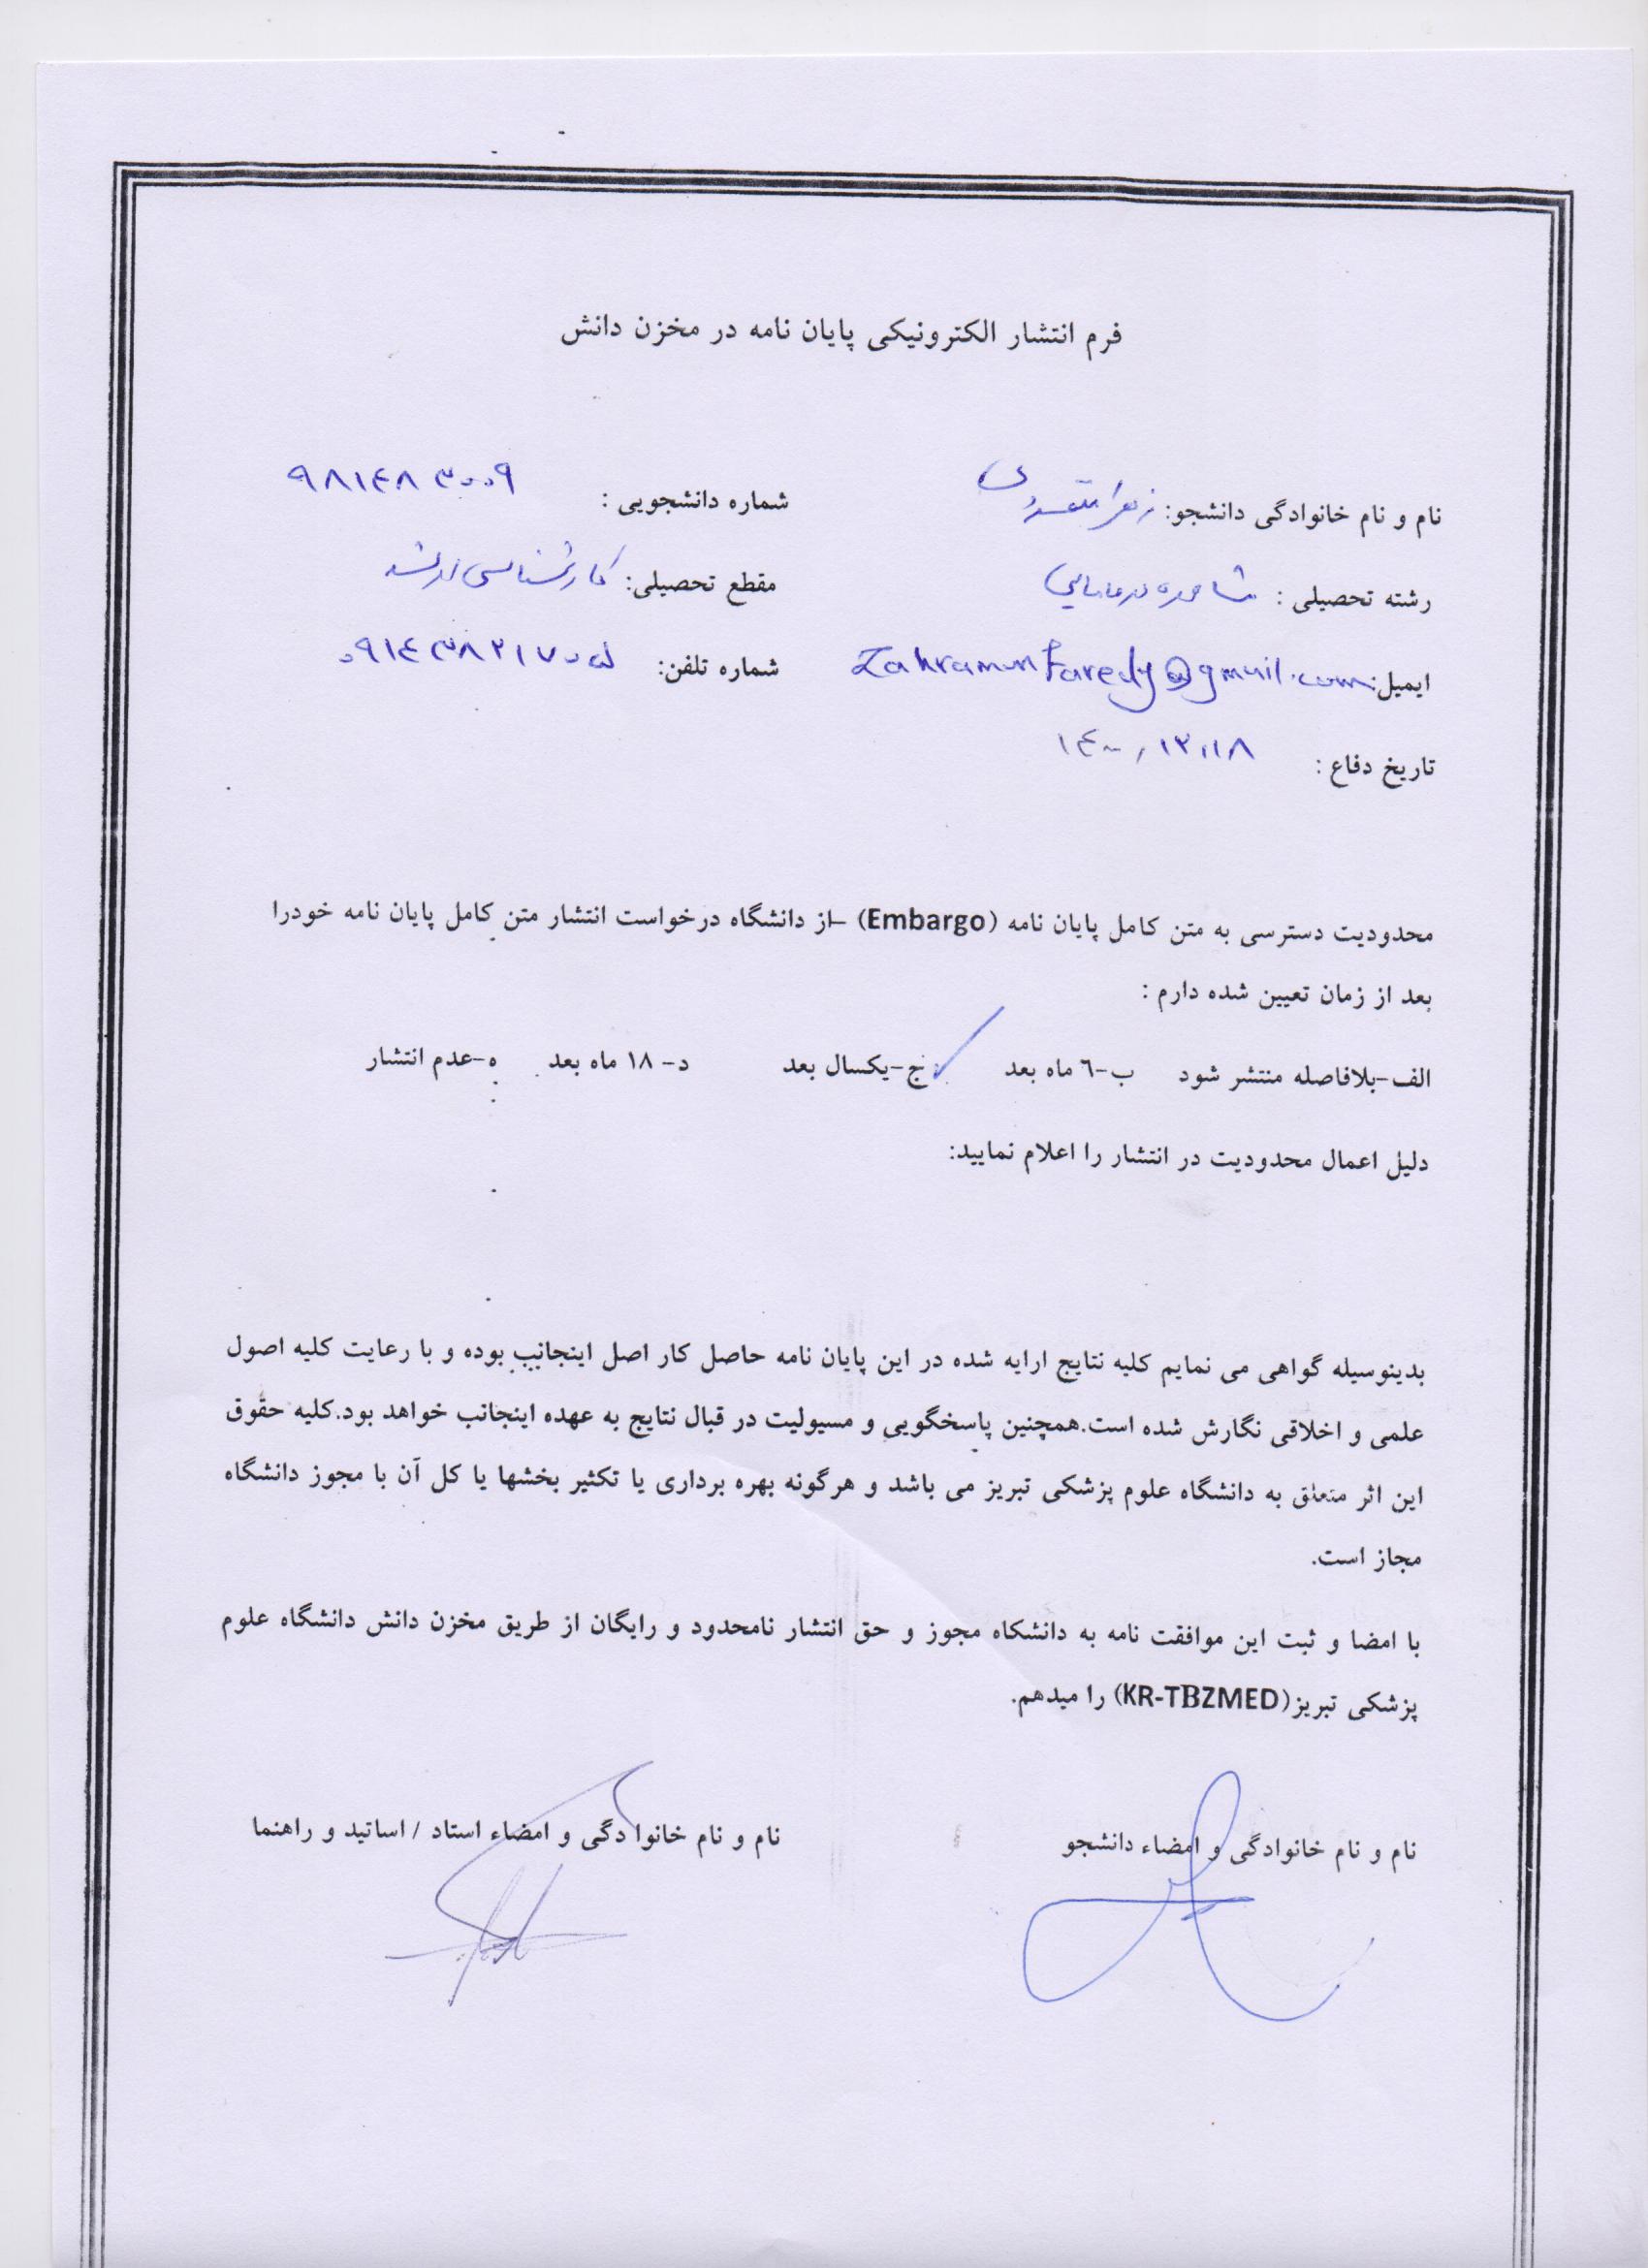 فرم انتشار الکترونیکی پایان نامه در مخزن دانش
نام و نام خانوادگی دانشجو: زهرا شماره دانشجویی : ٩٨١٤٨٣٠٠٩
رشته تحصیلی : مشاوره در مامایی مقطع تحصیلی: کارشناسی ارشد
ایمیل: شماره تلفن: ٠٩١٤٣٨٢١٧٠٥
تاریخ دفاع : ١٤٠٠,١٢,١٨
محدودیت دسترسی به متن کامل پایان نامه (Embargo) –از دانشگاه درخواست انتشار متن کامل پایان نامه خودرا
بعد از زمان تعیین شده دارم :
الف-بلافاصله منتشر شود ب-٦ ماه بعد ج-یکسال بعد د- ١٨ ماه بعد ه-عدم انتشار
دلیل اعمال محدودیت در انتشار را اعلام نمایید:
بدینوسیله گواهی می نمایم کلیه نتایج ارایه شده در این پایان نامه حاصل کار اصل اینجانب بوده و با رعایت کلیه اصول
علمی و اخلاقی نگارش شده است.همچنین پاسخگویی و مسیولیت در قبال نتایج به عهده اینجانب خواهد بود.کلیه حقوق
این اثر متعلق به دانشگاه علوم پزشکی تبریز می باشد و هرگونه بهره برداری یا تکثیر بخشها یا کل آن با مجوز دانشگاه
مجاز است.
با امضا و ثبت این موافقت نامه به دانشکاه مجوز و حق انتشار نامحدود و رایگان از طریق مخزن دانش دانشگاه علوم
پزشکی تبریز(KR-TBZMED) را میدهم.
نام و نام خانوادگی و امضاء دانشجو نام و نام خانوادگی و امضاء استاد / اساتید و راهنما